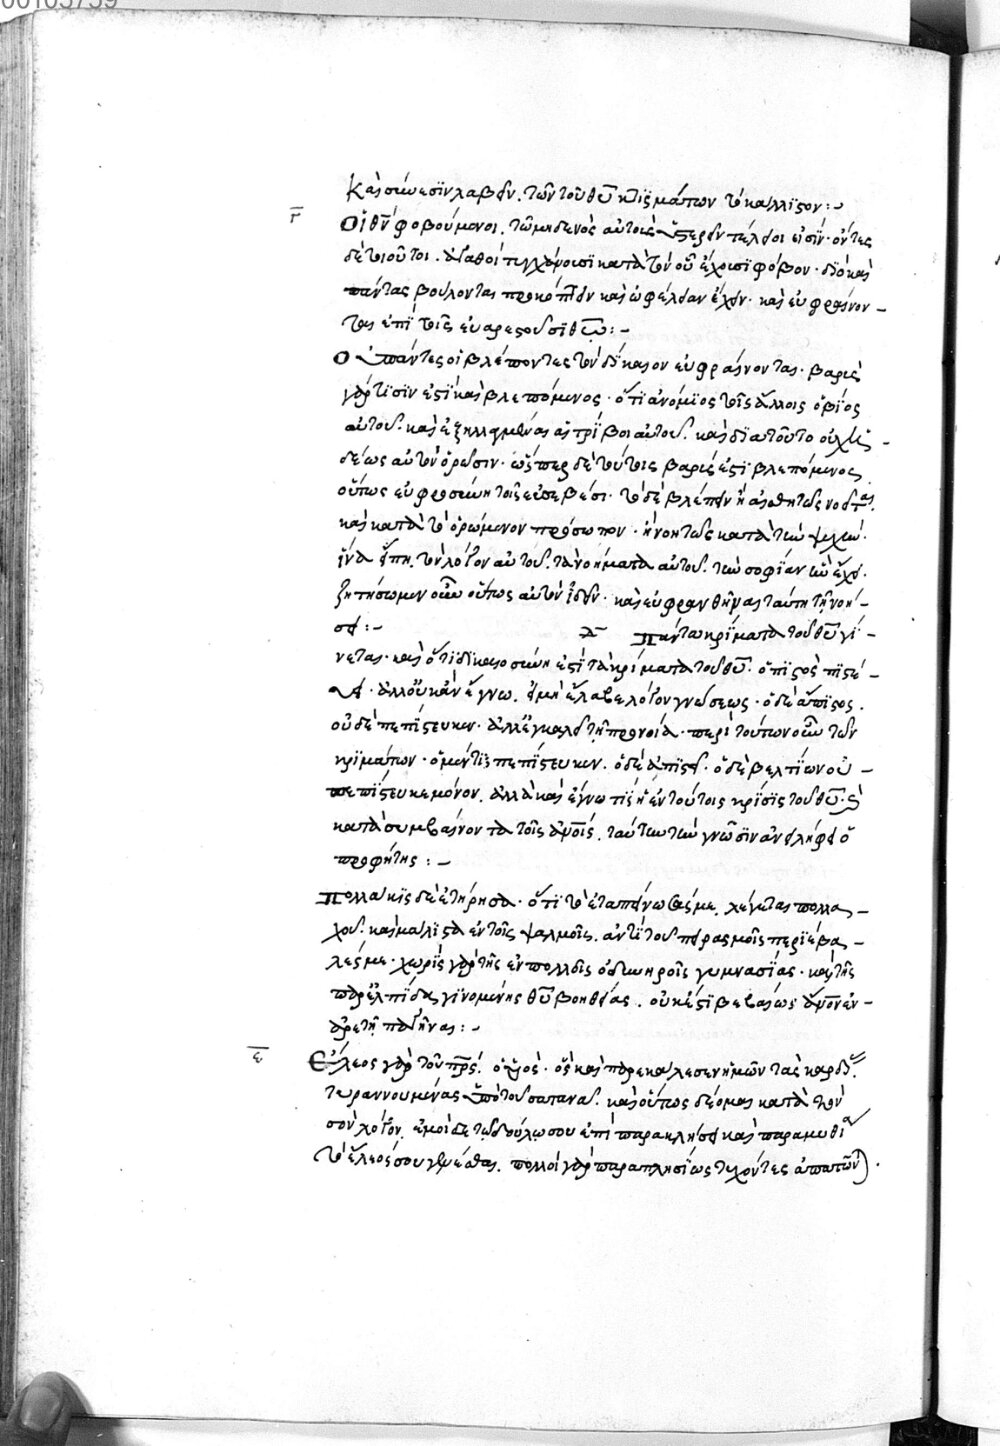 00105759
καὶ σύνεσιν λαβεῖν. τῶν τοῦ θῦ κτισμάτων τὸ κάλλιστον :-
γ
Οἱ θν̄ φοβούμενοι. τῷ μηδενὸς αὐτοῖς ὑστερεῖν τέλειοί εἰσιν· ὄντες
δὲ τοιοῦτοι. ἀγαθοὶ τυγχάνουσι κατὰ τὸν οὗ ἔχουσι φόβον· διὸ καὶ
πάντας βούλονται προκόπτειν καὶ ὠφέλειαν ἔχειν· καὶ εὐφραίνον-
ται ἐπὶ τοῖς εὐαρεστοῦσι θω̄ :-
Ο ἅπαντες οἱ βλέποντες τὸν δίκαιον εὐφραίνονται· βαρὺς
γάρ τισίν ἐστι καὶ βλεπόμενος· ὅτι ἀνόμοιος τοῖς ἄλλοις ὁ βίος
αὐτοῦ. καὶ ἐξηλλαγμέναι αἱ τρίβοι αὐτοῦ. καὶ διὰ τοῦτο οὐχ ἡ-
δέως αὐτὸν ὁρῶσιν· ὥσπερ δὲ τούτοις βαρύς ἐστι βλεπόμενος
οὕτως εὐφροσύνη τοῖς εὐσεβέσι· τὸ δὲ βλέπειν ἢ αἰσθητῶς νοεῖται.
καὶ κατὰ τὸ ὁρώμενον πρόσωπον· ἢ νοητῶς κατὰ τὴν ψυχήν·
ἵνα εἴπῃ τὸν λόγον αὐτοῦ. τὰ νοήματα αὐτοῦ. τὴν σοφίαν ἣν ἔχει·
ζητήσωμεν οὖν οὕτως αὐτὸν ἰδεῖν· καὶ εὐφρανθῆναι ταύτῃ τῇ νοή-
σει :- δ Πάντα κρίματα τοῦ θῦ γί-
νεται· καὶ ὅτι δικαιοσύνη ἐστὶ τὰ κρίματα τοῦ θῦ· ὁ πιστὸς πιστεύ-
ει· ἀλλ' οὐκ ἂν ἔγνω. εἰ μὴ ἔλαβε λόγον γνώσεως· ὁ δὲ ἄπιστος.
οὐδὲ πεπίστευκεν· ἀλλ' ἐγκαλεῖ τῇ προνοίᾳ· περὶ τούτων οὖν τῶν
κριμάτων· ὁ μέν τις πεπίστευκεν. ὁ δὲ ἀπιστεῖ· ὁ δὲ βελτίων οὐ
πεπίστευκε μόνον. ἀλλὰ καὶ ἔγνω τίς ἡ ἐν τούτοις κρίσις τοῦ θῦ· καὶ
κατὰ συμβαίνοντα τοῖς ἀνοις. ταύτην τὴν γνῶσιν ἀνείληφεν ὁ
προφήτης :-
Πολλάκις δὲ ἐτήρησα· ὅτι τὸ ἐταπείνωσάς με, λέγεται πολλα-
χοῦ. καὶ μάλιστα ἐν τοῖς ψαλμοῖς. ἀντὶ τοῦ πειρασμοῖς περιέβα-
λές με· χωρὶς γὰρ τῆς ἐν πολλοῖς ὀδυνηροῖς γυμνασίας· καὶ τῆς
παρ' ἐλπίδα γινομένης θῦ βοηθείας. οὐκ ἔστι βεβαίως ἄνον ἐν-
ἀρετῇ παγῆναι :-
ε
Ἔλεος γὰρ τοῦ πρς. ὁ υἱός· ὃς καὶ παρεκάλεσεν ἡμῶν τὰς καρδίας
τυραννουμένας ὑπὸ τοῦ σατανᾶ. καὶ οὕτως δέομαι κατὰ τὸν
σὸν λόγον. ἐμοὶ δὲ τῷ δούλῳ σου ἐπὶ παρακλήσει καὶ παραμυθίᾳ
τὸ ἔλεός σου γενέσθαι. πολλοὶ γὰρ παραπλησίως τυχόντες ἁπάντων.